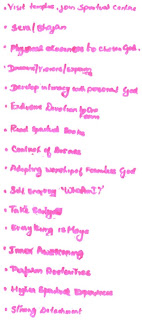 • Visit temples, join Spiritual Centre
• Seva/Bhajan
• Physical closeness to chosen God.
• Dreams/Visions/
• Develop intimacy with personal God
• Extreme Devotion to One Form
• Read Spiritual Books
• Control of Senses
• Adopting worship of Formless God
• Self Enquiry "Who Am I?"
• Take
• Everything is Maya
• Inner Awakening
• Perform Austerities
• Higher Spiritual Experiences
• Strong Detachment